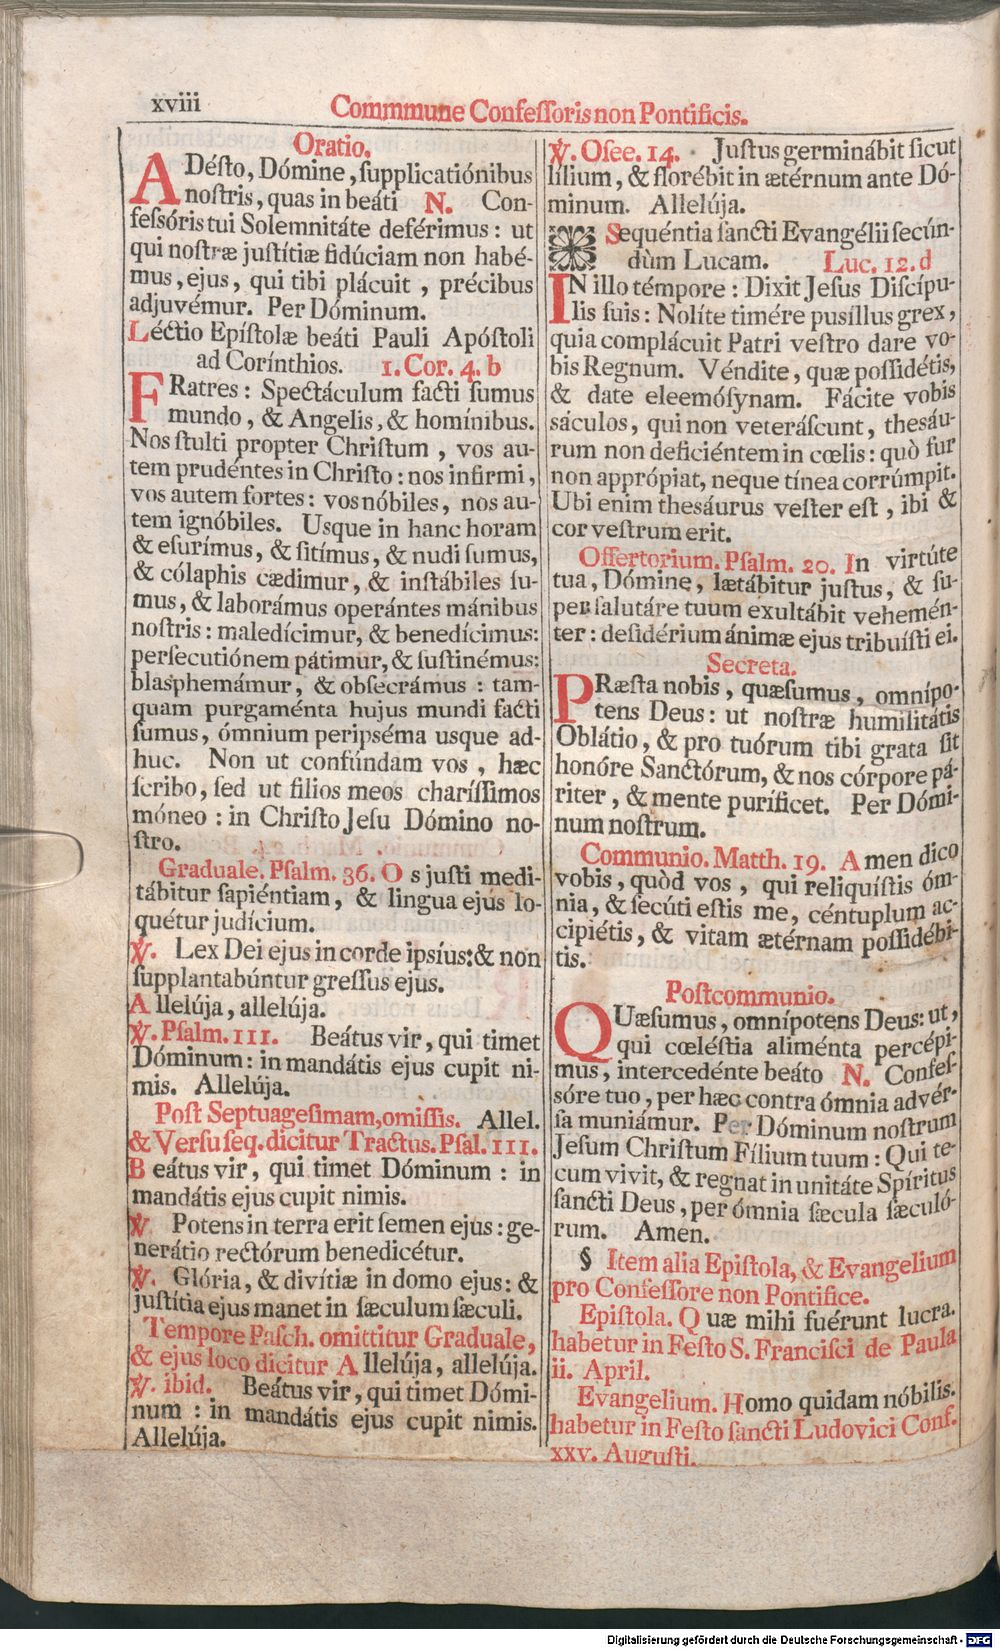 xviii
Commmune Confeſſoris non Pontificis.
Oratio.
ADéſto, Dómine, ſupplicatiónibus
noſtris, quas in beáti N. Con-
feſſóris tui Solemnitáte deférimus: ut
qui noſtræ juſtítiæ fidúciam non habé-
mus, ejus, qui tibi plácuit, précibus
adjuvémur. Per Dóminum.
Léctio Epíſtolæ beáti Pauli Apóſtoli
ad Corínthios. 1. Cor. 4. b
FRatres: Spectáculum facti ſumus
mundo, & Angelis, & homínibus.
Nos ſtulti propter Chriſtum, vos au-
tem prudéntes in Chriſto: nos infirmi,
vos autem fortes: vos nóbiles, nos au-
tem ignóbiles. Usque in hanc horam
& eſurímus, & ſitímus, & nudi ſumus,
& cólaphis cædimur, & inſtábiles ſu-
mus, & laborámus operántes mánibus
noſtris: maledícimur, & benedícimus:
perſecutiónem pátimur, & ſuſtinémus:
blasphemámur, & obſecrámus: tam-
quam purgaménta hujus mundi facti
ſumus, ómnium peripséma usque ad-
huc. Non ut confúndam vos, hæc
ſcribo, ſed ut filios meos charíſſimos
móneo: in Chriſto Jeſu Dómino no-
ſtro.
Graduale. Pſalm. 36. Os juſti medi-
tábitur ſapiéntiam, & lingua ejus lo-
quétur judícium.
℣. Lex Dei ejus in corde ipsíus: & non
ſupplantabúntur greſſus ejus.
Allelúja, allelúja.
℣. Pſalm. 111. Beátus vir, qui timet
Dóminum: in mandátis ejus cupit ni-
mis. Allelúja.
Poſt Septuageſimam, omiſſis. Allel.
& Verſu ſeq. dicitur Tractus. Pſal. 111.
Beátus vir, qui timet Dóminum: in
mandátis ejus cupit nimis.
℣. Potens in terra erit ſemen ejus: ge-
nerátio rectórum benedicétur.
℣. Glória, & divítiæ in domo ejus: &
juſtítia ejus manet in ſæculum ſæculi.
Tempore Paſch. omittitur Graduale,
& ejus loco dicitur Allelúja, allelúja.
℣. ibid. Beátus vir, qui timet Dómi-
num: in mandátis ejus cupit nimis.
Allelúja.
℣. Oſee. 14. Juſtus germinábit ſicut
lílium, & florébit in ætérnum ante Dó-
minum. Allelúja.
Sequéntia ſancti Evangélii ſecún-
dùm Lucam. Luc. 12. d
IN illo témpore: Dixit Jeſus Diſcípu-
lis ſuis: Nolíte timére pusíllus grex,
quia complácuit Patri veſtro dare vo-
bis Regnum. Véndite, quæ poſſidétis,
& date eleemóſynam. Fácite vobis
sáculos, qui non veteráſcunt, theſáu-
rum non deficiéntem in cœlis: quò fur
non apprópiat, neque tínea corrúmpit.
Ubi enim theſáurus veſter eſt, ibi &
cor veſtrum erit.
Offertorium. Pſalm. 20. In virtúte
tua, Dómine, lætábitur juſtus, & ſu-
per ſalutáre tuum exultábit vehemén-
ter: deſidérium ánimæ ejus tribuíſti ei.
Secreta.
PRæſta nobis, quæſumus, omnípo-
tens Deus: ut noſtræ humilitátis
Oblátio, & pro tuórum tibi grata ſit
honóre Sanctórum, & nos córpore pá-
riter, & mente puríficet. Per Dómi-
num noſtrum.
Communio. Matth. 19. Amen dico
vobis, quòd vos, qui reliquíſtis óm-
nia, & ſecúti eſtis me, céntuplum ac-
cipiétis, & vitam ætérnam poſſidébi-
tis.
Poſtcommunio.
QUæſumus, omnípotens Deus: ut,
qui cœléſtia aliménta percépi-
mus, intercedénte beáto N. Confeſ-
sóre tuo, per hæc contra ómnia advér-
ſa muniámur. Per Dóminum noſtrum
Jeſum Chriſtum Fílium tuum: Qui te-
cum vivit, & regnat in unitáte Spíritus
ſancti Deus, per ómnia ſæcula ſæculó-
rum. Amen.
§ Item alia Epiſtola, & Evangelium
pro Confeſſore non Pontifice.
Epiſtola. Quæ mihi fuérunt lucra.
habetur in Feſto S. Franciſci de Paula
ii. April.
Evangelium. Homo quidam nóbilis.
habetur in Feſto ſancti Ludovici Conf.
xxv. Auguſti.
Digitalisierung gefördert durch die Deutsche Forschungsgemeinschaft - DFG